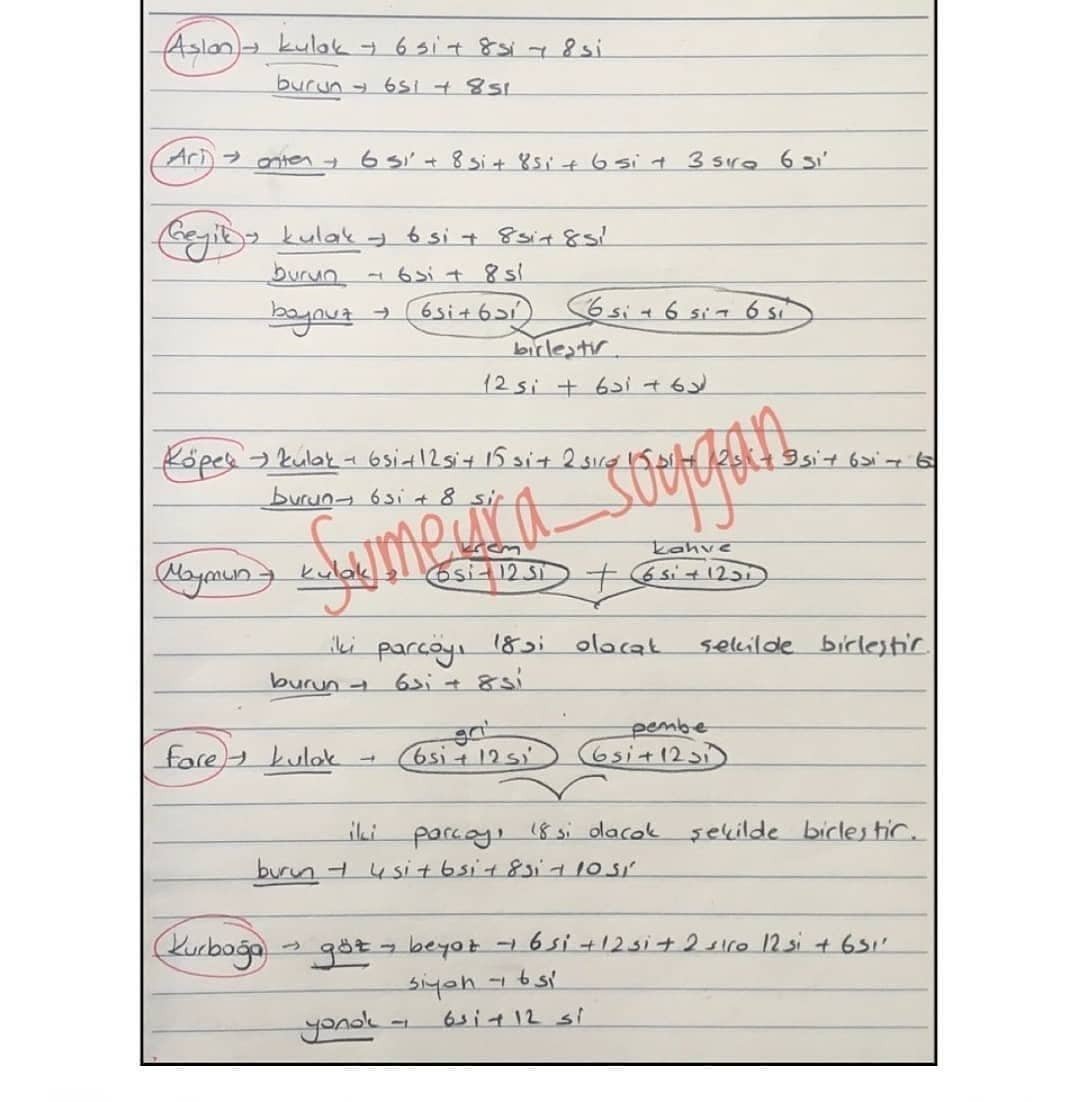 Aslan → kulak → 6 si + 8si + 8si
burun → 6si + 8si
Ari → anten → 6 si + 8si + 8si + 6 si + 3 sıra 6 si
Geyik → kulak → 6 si + 8si + 8si
burun → 6si + 8si
boynuz → 6si + 6si 6 si + 6 si + 6 si
birleştir.
12 si + 6si + 6si
Köpek → kulak → 6si + 12si + 15 si + 2 sıra 15si + 12si + 9si + 6si + 6
burun → 6si + 8 si
Sumeyra_soygan
krem kahve
Maymun → kulak → 6si + 12si + 6si + 12si
iki parçayı 18si olacak şekilde birleştir.
burun → 6si + 8si
gri pembe
Fare → kulak → 6si + 12si 6si + 12si
iki parcayı 18 si olacak şekilde birleştir.
burun → 4si + 6si + 8si + 10si
Kurbağa → göz → beyaz → 6si + 12si + 2 sıra 12si + 6si
siyah → 6si
yanak → 6si + 12 si